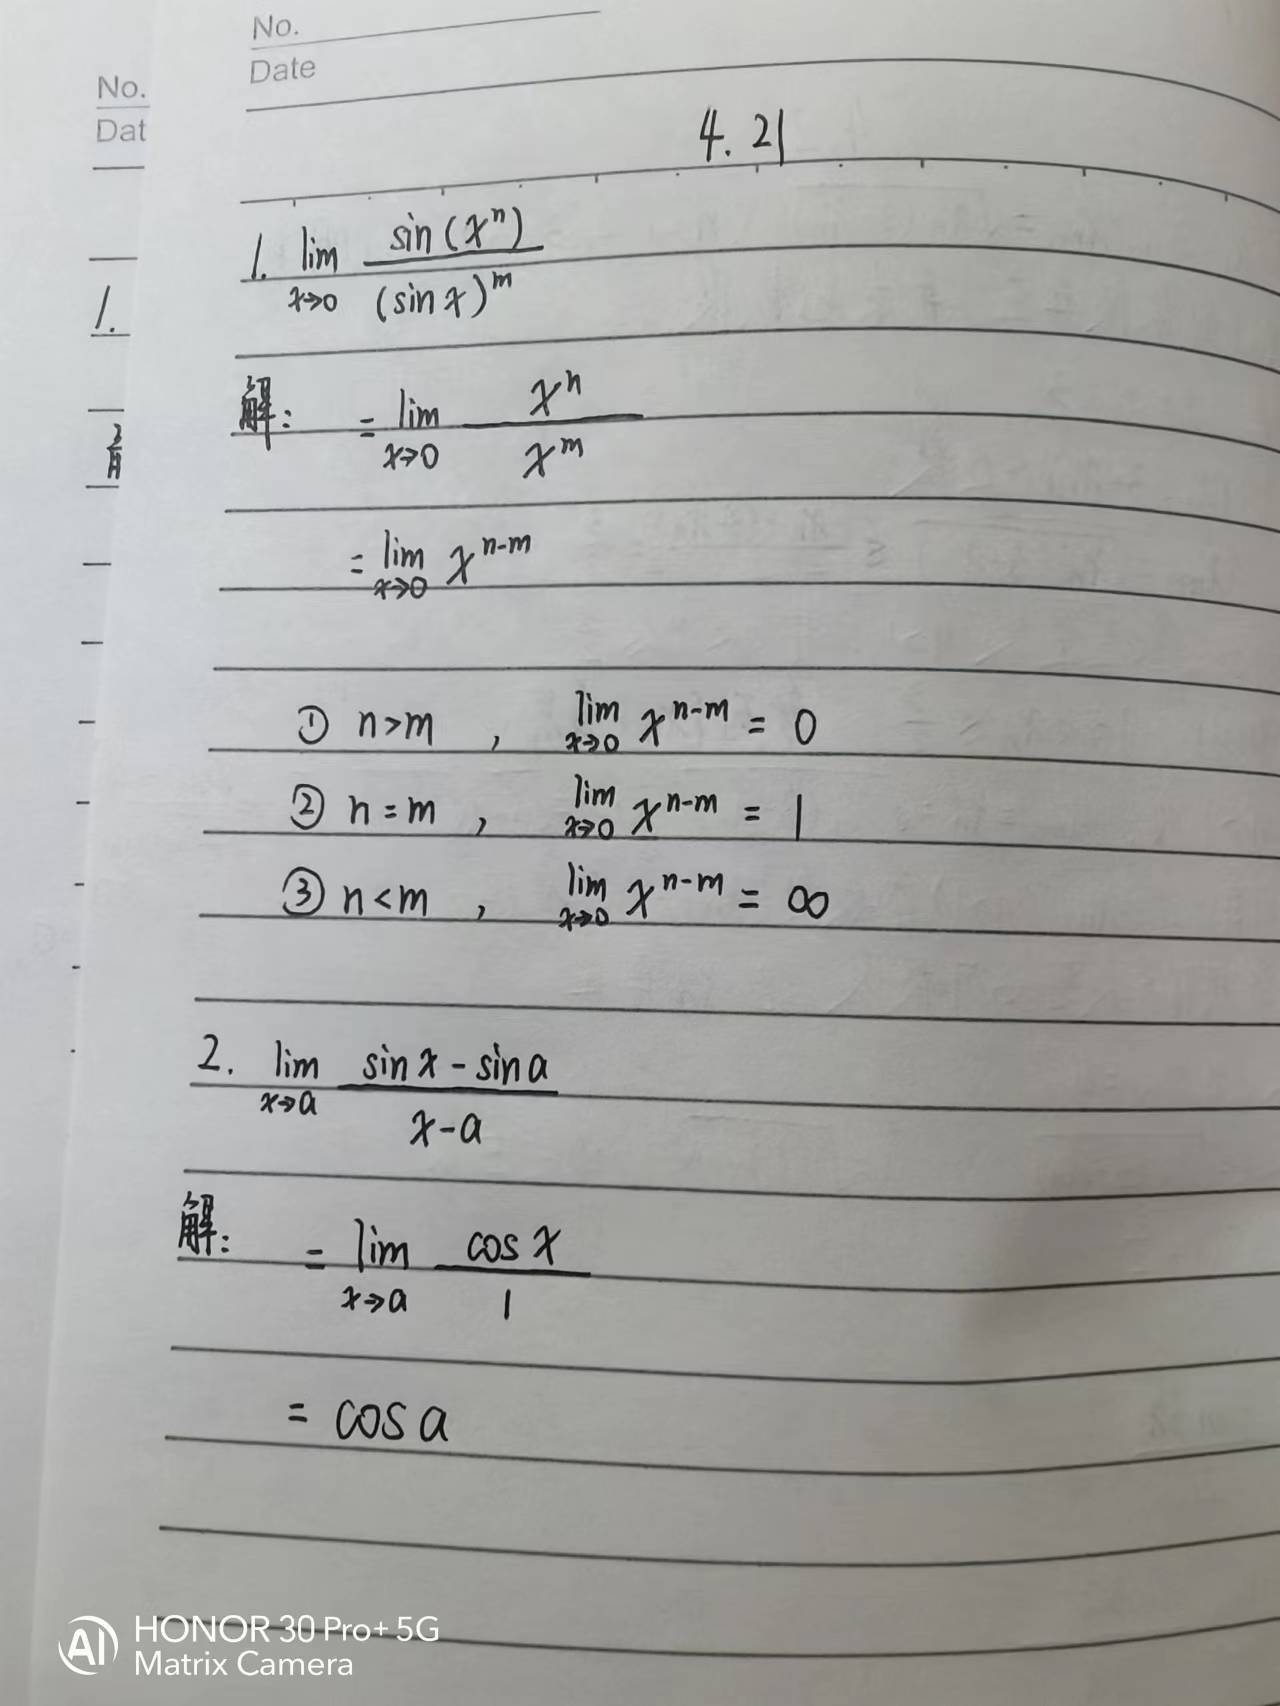 No.
Date
No.
Dat
4.21
1. lim x→0 sin(xⁿ) / (sin x)ᵐ
1.
解: = lim x→0 xⁿ / xᵐ
= lim x→0 xⁿ⁻ᵐ
① n>m , lim x→0 xⁿ⁻ᵐ = 0
② n=m , lim x→0 xⁿ⁻ᵐ = 1
③ n<m , lim x→0 xⁿ⁻ᵐ = ∞
2. lim x→a sin x - sin a / x-a
解: = lim x→a cos x / 1
= cos a
AI HONOR 30 Pro+ 5G
Matrix Camera